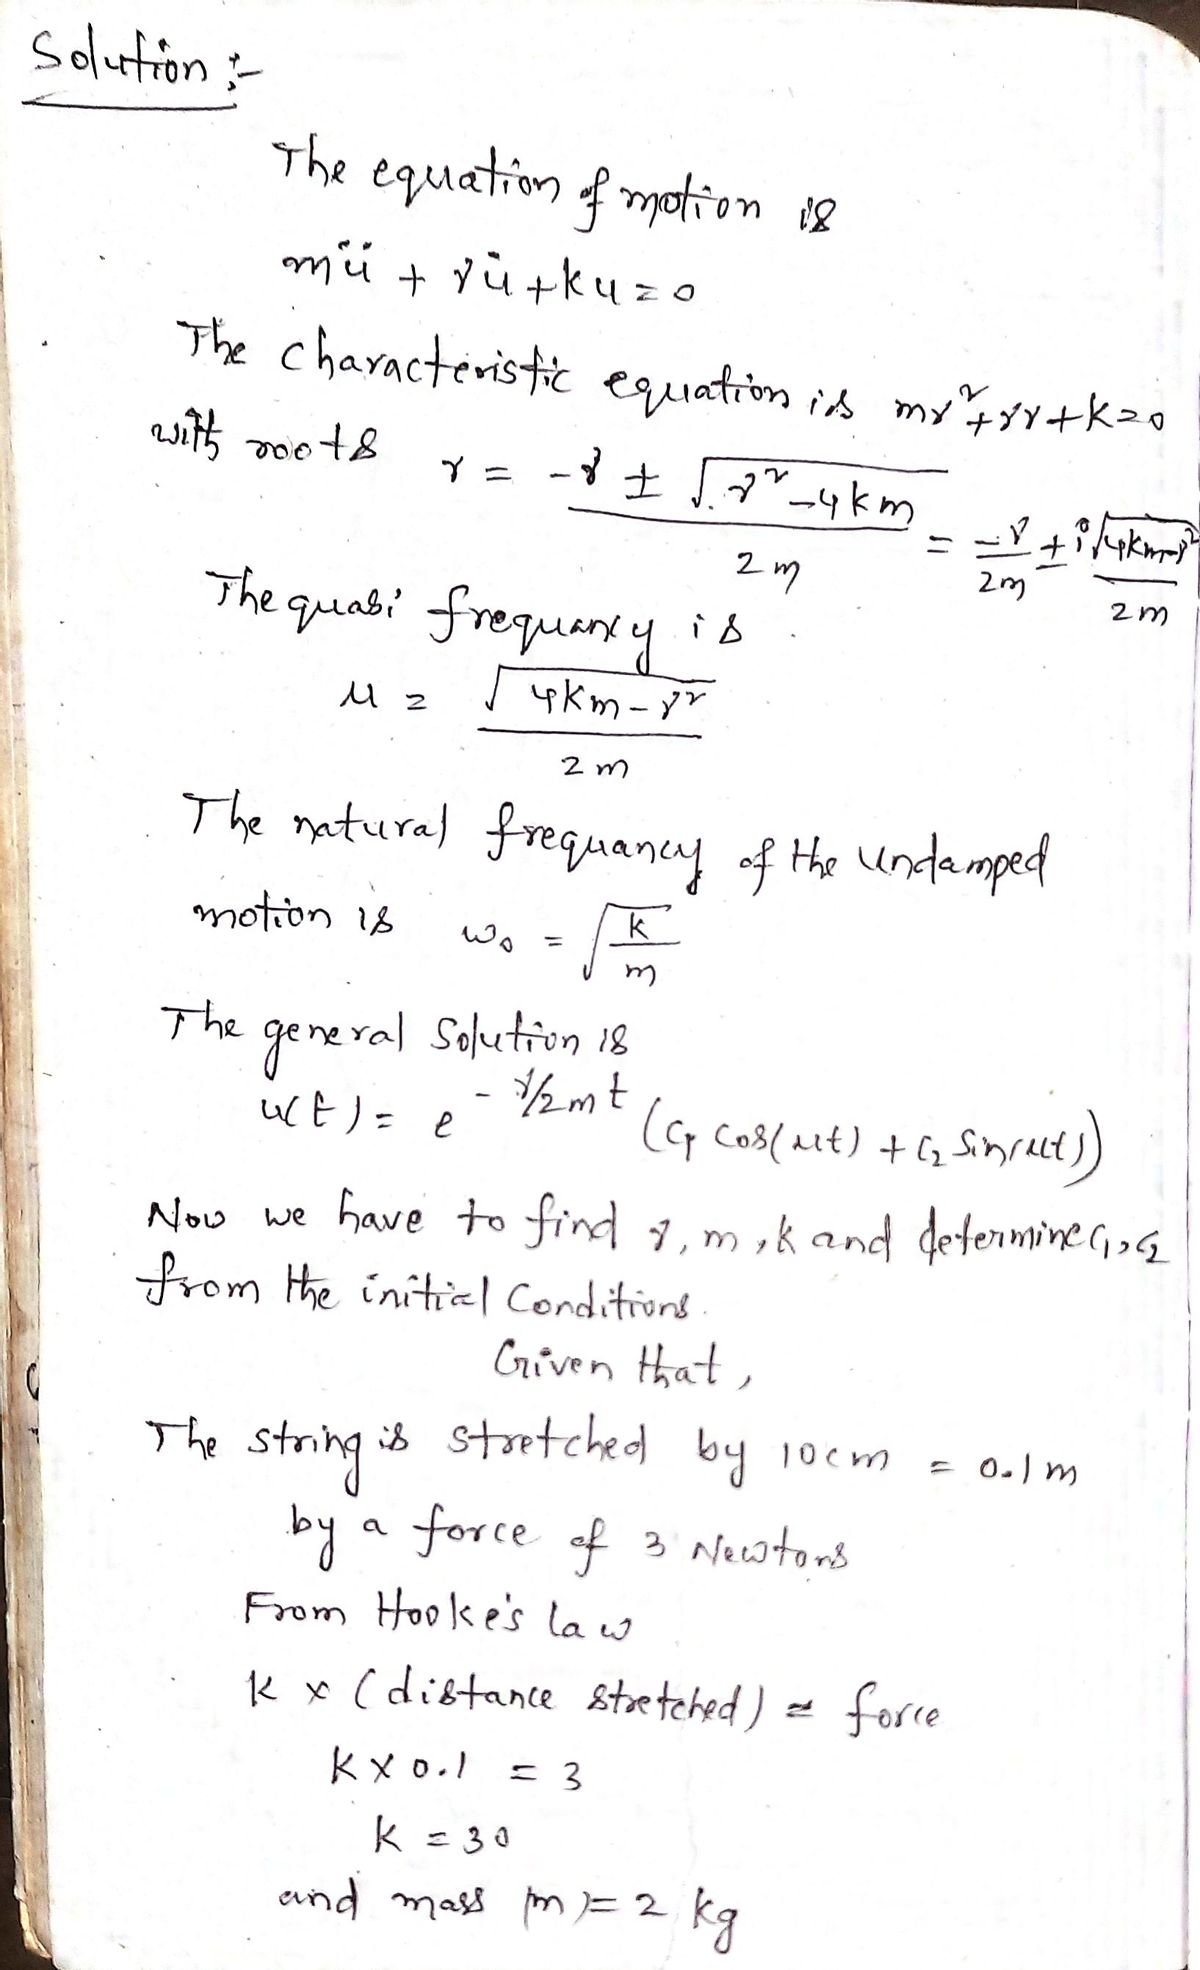 Solution :-
The equation of motion is
mü + γu̇ + ku = 0
The characteristic equation is mr² + γr + k = 0
with roots r = (-γ ± √(γ² - 4km)) / 2m = -γ/2m ± i√(4km - γ²) / 2m
The quasi frequancy is
μ = √(4km - γ²) / 2m
The natural frequancy of the undamped
motion is ω₀ = √(k/m)
The general Solution is
u(t) = e^(-γ/2m t) (C₁ cos(μt) + C₂ Sin(μt))
Now we have to find γ, m, k and determine C₁, C₂
from the initial Conditions.
Given that,
The string is stretched by 10cm = 0.1 m
by a force of 3 Newtons
From Hooke's law
K × (distance stretched) = force
K × 0.1 = 3
K = 30
and mass (m) = 2 kg